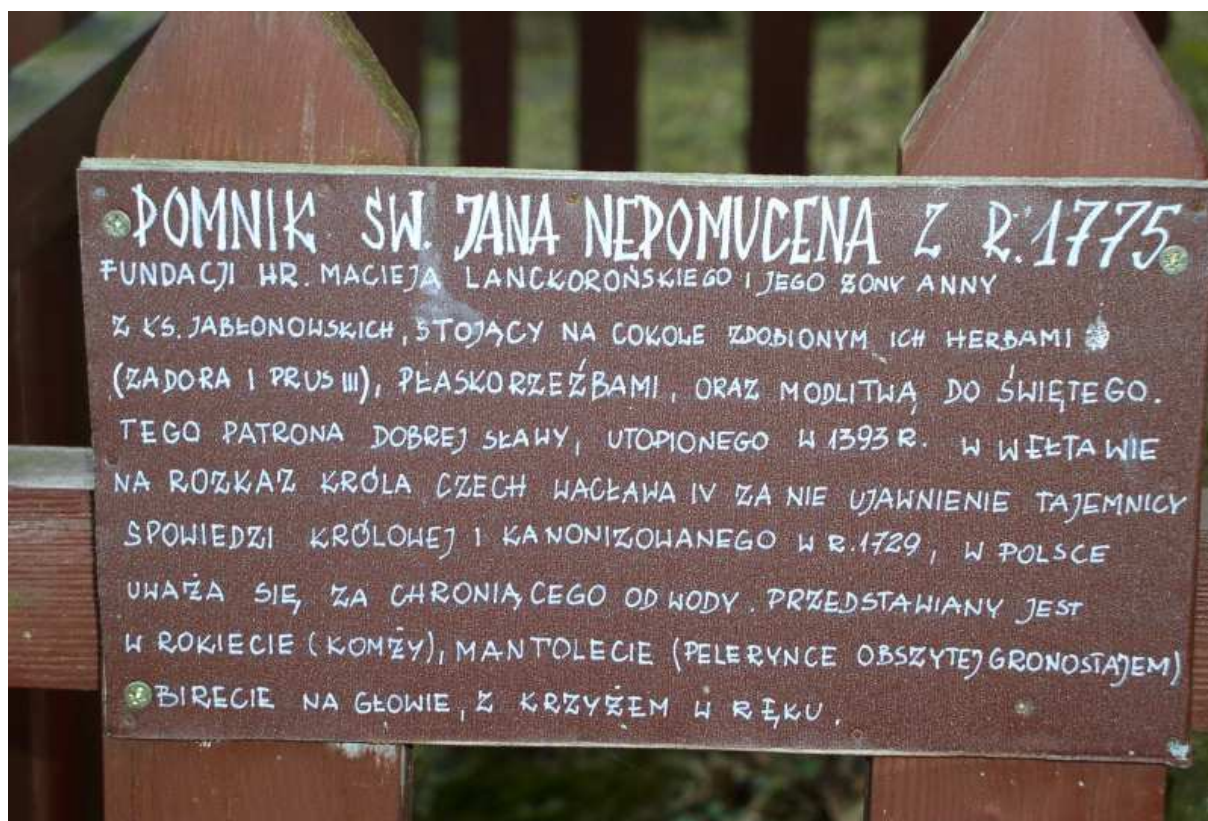 POMNIK ŚW. JANA NEPOMUCENA Z R. 1775
FUNDACJI HR. MACIEJA LANCKOROŃSKIEGO I JEGO ŻONY ANNY
Z KS. JABŁONOWSKICH, STOJĄCY NA COKOLE ZDOBIONYM ICH HERBAMI
(ZADORA I PRUS III), PŁASKORZEŹBAMI, ORAZ MODLITWĄ DO ŚWIĘTEGO.
TEGO PATRONA DOBREJ SŁAWY, UTOPIONEGO W 1393 R. W WEŁTAWIE
NA ROZKAZ KRÓLA CZECH WACŁAWA IV ZA NIE UJAWNIENIE TAJEMNICY
SPOWIEDZI KRÓLOWEJ I KANONIZOWANEGO W R. 1729, W POLSCE
UWAŻA SIĘ ZA CHRONIĄCEGO OD WODY. PRZEDSTAWIANY JEST
W ROKIECIE (KOMŻY), MANTOLECIE (PELERYNCE OBSZYTEJ GRONOSTAJEM)
BIRECIE NA GŁOWIE, Z KRZYŻEM W RĘKU.